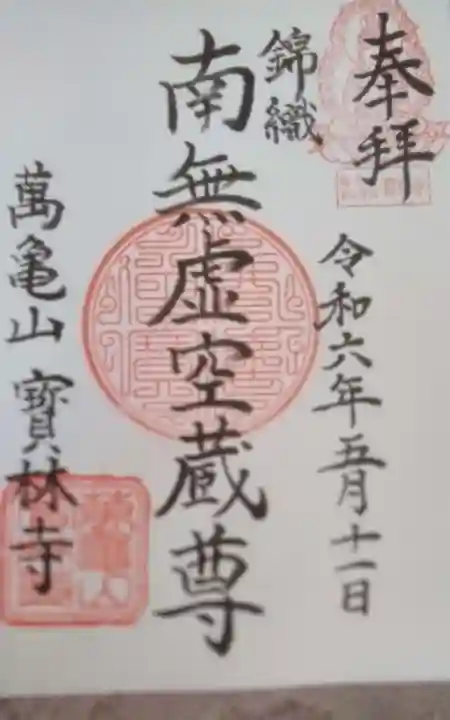 奉拝
令和六年五月十一日
錦織
南無虚空蔵尊
萬亀山 寳林寺